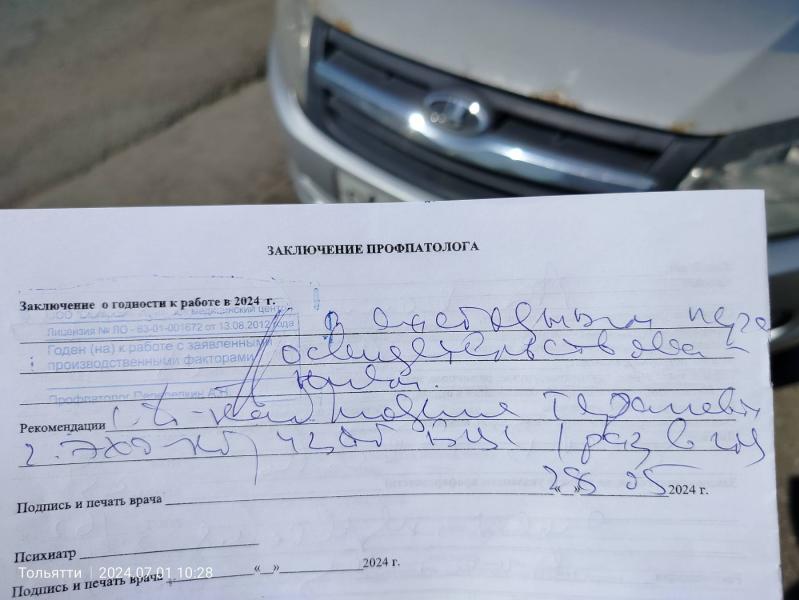 ЗАКЛЮЧЕНИЕ ПРОФПАТОЛОГА
Заключение о годности к работе в 2024 г.
медицинский центр
Лицензия № ЛО - 63-01-001672 от 13.08.2012 года
Годен (на) к работе с заявленными
производственными факторами
Профпатолог
с ежегодным пере
освидетельствова-
нием.
Рекомендации 1.
2. ЭХО-КГ, УЗДГ БЦС 1 раз в год
Подпись и печать врача «28» 05 2024 г.
Психиатр
Подпись и печать врача «__» 2024 г.
Тольятти | 2024.07.01 10:28